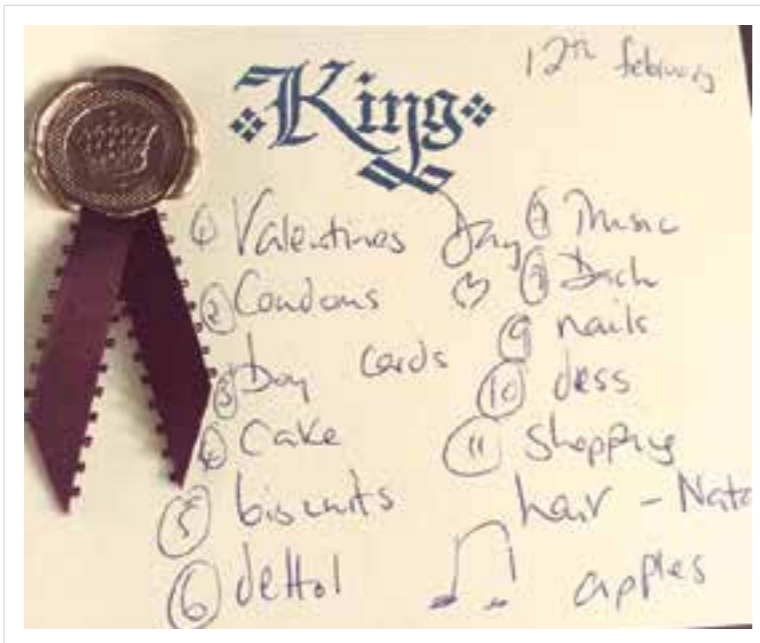 12th february
King
① Valentines Day
② Condoms
③ Day cards
④ Cake
⑤ biscuits
⑥ dettol
⑦ Music
⑨ nails
⑩ dess
⑪ shopping
hair -
apples